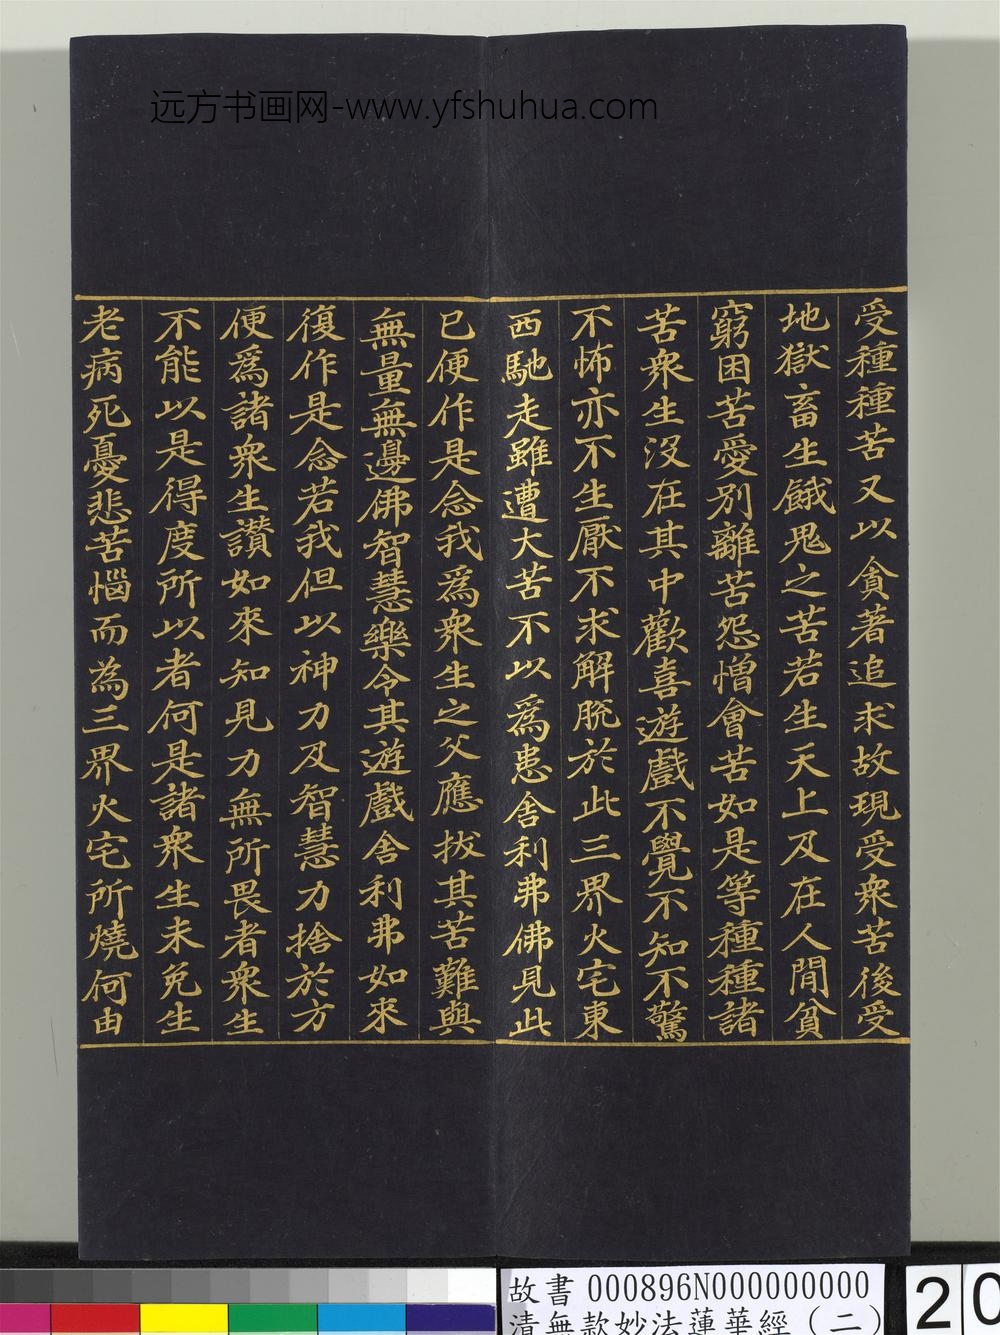 远方书画网-www.yfshuhua.com
受種種苦又以貪著追求故現受衆苦後受
地獄畜生餓鬼之苦若生天上及在人間貧
窮困苦愛別離苦怨憎會苦如是等種種諸
苦衆生沒在其中歡喜遊戲不覺不知不驚
不怖亦不生厭不求解脫於此三界火宅東
西馳走雖遭大苦不以爲患舍利弗佛見此
已便作是念我爲衆生之父應拔其苦難與
無量無邊佛智慧樂令其遊戲舍利弗如來
復作是念若我但以神力及智慧力捨於方
便爲諸衆生讚如來知見力無所畏者衆生
不能以是得度所以者何是諸衆生未免生
老病死憂悲苦惱而為三界火宅所燒何由
故書 000896N000000000
清無款妙法蓮華經（二）
20